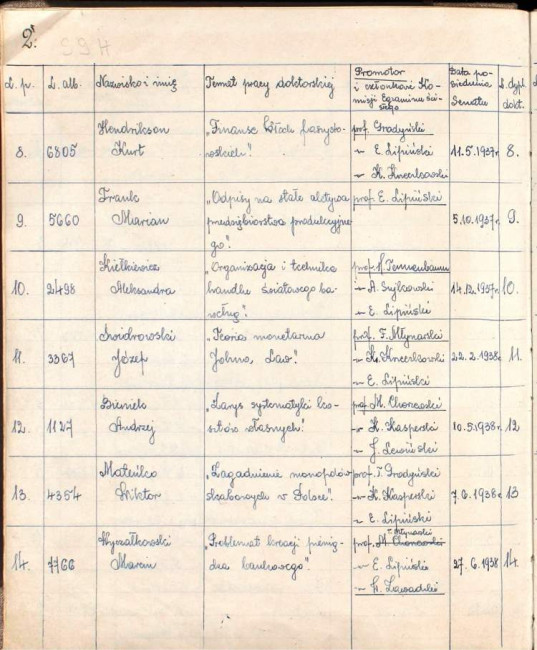 2.
L. p. L. alb. Nazwisko i imię Temat pracy doktorskiej Promotor i członkowie Komisji Egzaminu ścisłego Data posiedzenia Senatu L. dypl. dokt.
8. 6805 Hendrikson Kurt "Finanse Włoch faszystowskich". prof. Grodyński " E. Lipiński " K. 11.5.1937r. 8.
9. 5660 Frank Marian "Odpisy na stałe aktywa przedsiębiorstwa produkcyjnego". prof. E. Lipiński 5.10.1937r. 9.
10. 2498 Kiełkiewicz Aleksandra "Organizacja i technika handlu światowego bawełną". prof. H. Tennenbaum " A. " E. Lipiński 14.12.1937r. 10.
11. 3367 Świdrowski Józef "Teoria monetarna Johna Law". prof. F. Młynarski " K. " E. Lipiński 22.2.1938r. 11.
12. 1127 Bieniek Andrzej "Zarys systematyki kosztów własnych". prof. M. " K. Kasperski " J. Lewiński 10.5.1938r. 12
13. 4354 Mateńko Wiktor "Zagadnienie monopolów skarbowych w Polsce". prof. T. Grodyński " K. Kasperski " E. Lipiński 7.6.1938r. 13
14. 1766 Marcin "Problemat kreacji pieniądza bankowego". prof. F. Młynarski " E. Lipiński " W. Zawadzki 27.6.1938 14.